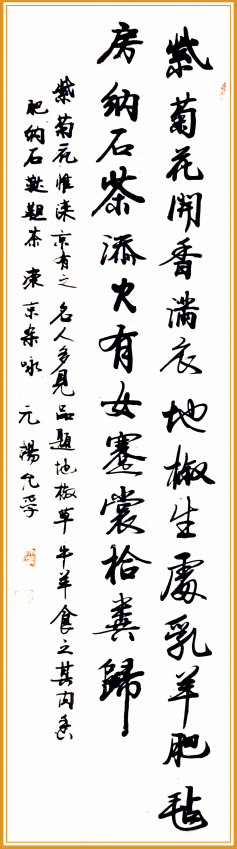 紫菊花開香滿衣地椒生處乳羊肥氊
房納石茶添火有女蹇裳拾糞歸
紫菊花惟灤京有之名人多見品題地椒草牛羊食之其肉香
肥納石鞑靼茶灤京杂咏元楊允孚